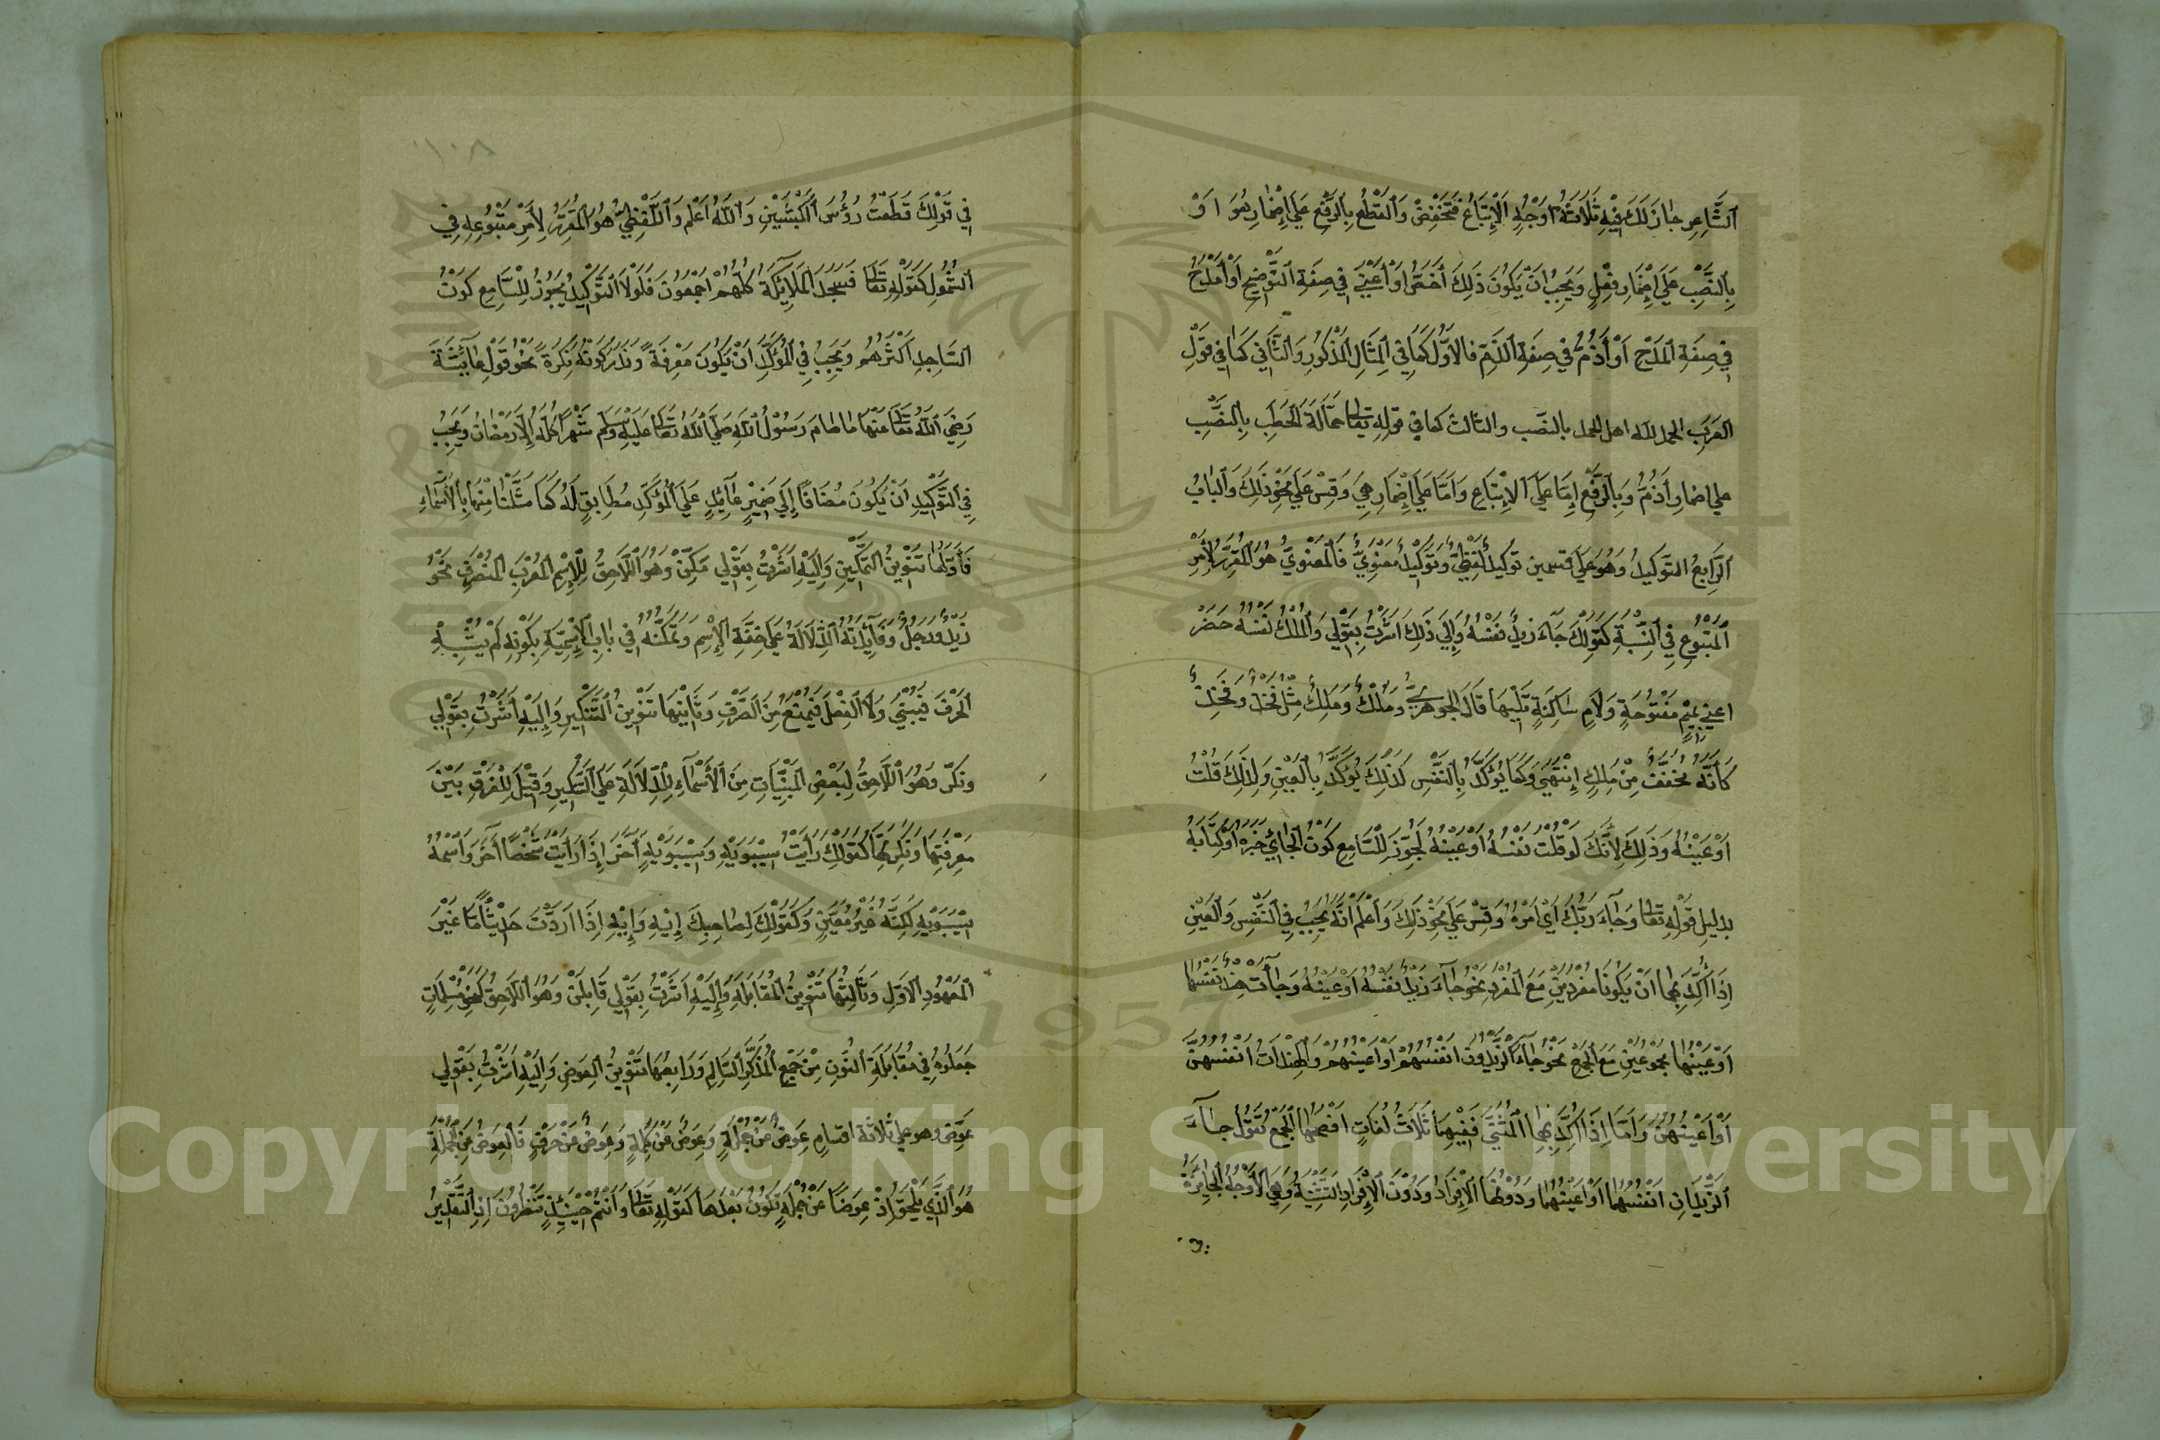 الشَّاعِرِ جَازَ لَكَ فِيْهِ ثَلَاثَةُ اَوْجُهٍ اَلْاِتْبَاعُ فَتَخْفِضُ وَالْقَطْعُ بِالرَّفْعِ عَلَى اِضْمَارِ هُوَ اَوْ
بِالنَّصْبِ عَلَى اِضْمَارِ فِعْلٍ وَيَجِبُ اَنْ يَكُونَ ذَلِكَ اَخَصُّ اَوْ اَعْنِيَ فِي صِفَةِ التَّوْضِيحِ اَوْ اَمْدَحُ
فِي صِفَةِ الْمَدْحِ اَوْ اَذُمُّ فِي صِفَةِ الذَّمِّ فَالاَوَّلُ كَمَا فِي الْمِثَالِ الْمَذْكُورِ وَالثَّانِي كَمَا فِي قَوْلِ
العَرَبِ الحمد لله اهل الحمد بالنصَب والثالث كما في قولِهِ تَعَالَى حَمَّالَةَ الْحَطَبِ بِالنَّصْبِ
على اضمارِ اَذُمُّ وَبِالرَّفْعِ اِمَّا عَلَى الْاِتْبَاعِ وَاِمَّا عَلَى اِضْمَارِ هِيَ وَقِسْ عَلَى نَحْوِ ذَلِكَ وَالْبَابُ
الرَّابِعُ التوَكيدُ وَهُوَ عَلَى قسمين توكيدٌ لَفْظِيٌّ وَتَوْكِيدٌ مَعْنَوِيٌّ فَالْمَعْنَوِيُّ هُوَ الْمُقَرِّرُ لِأَمْرِ
الْمَتْبُوعِ فِي النِّسْبَةِ كَقَوْلِكَ جَآءَ زيدٌ نَفْسُهُ وَاِلَى ذَلِكَ اَشَرْتُ بِقَوْلِي وَالْمَلْكُ نَفْسُهُ حَضَرْ
اعني بِمِيمٍ مَفْتُوْحَةٍ وَلَامٍ سَاكِنَةٍ تَلِيْهَا قَالَ الجَوهَرِيُّ وَمَلْكٌ وَمَلِكٌ مِثْلُ فَخْذٍ وَفَخِذٍ
كَأَنَّهُ مُخَفَّفٌ مِنْ مَلِكٍ اِنْتَهَى وَكَمَا يُؤَكَّدُ بِالنَّفْسِ كَذَلِكَ يُؤَكَّدُ بِالْعَيْنِ وَلِذَلِكَ قُلْتُ
اَوْ عَيْنُهُ وَذَلِكَ لِاَنَّكَ لَوْ قُلْتَ نَفْسُهُ اَوْ عَيْنُهُ لَجُوِّزَ لِلسَّامِعِ كَوْنُ الْجَائِي خَبَرَهُ اَوْ كِتَابَهُ
بدليلِ قَوْلِهِ تعَالَى وَجَآءَ رَبُّكَ اَيْ اَمْرُهُ وَقِسْ عَلَى نَحْوِ ذَلِكَ وَاعْلَمْ اَنَّهُ يَجِبُ فِي النَّفْسِ وَالْعَيْنِ
اِذَا اُكِّدَ بِهِمَا اَنْ يَكُونَا مُفْرَدَيْنِ مَعَ الْمُفْرَدِ نَحْوُ جَآءَ زَيْدٌ نَفْسُهُ اَوْ عَيْنُهُ وَجَآءَتْ هِنْدٌ نَفْسُهَا
اَوْ عَيْنُهَا مَجْمُوْعَيْنِ مَعَ الْجَمْعِ نَحْوُ جَآءَ الزَّيْدُوْنَ اَنْفُسُهُمْ اَوْ اَعْيُنُهُمْ وَالْهِنْدَاتُ اَنْفُسُهُنَّ
اَوْ اَعْيُنُهُنَّ وَاَمَّا اِذَا اُكِّدَ بِهِمَا الْمُثَنَّى فَفِيْهِمَا ثَلَاثُ لُغَاتٍ اَفْصَحُهَا الْجَمْعُ تَقُولُ جَآءَ
الزَّيْدَانِ اَنْفُسُهُمَا اَوْ اَعْيُنُهُمَا وَدُوْنَهَا الْاِفْرَادُ وَدُوْنَ الْاِفْرَادِ التَّثْنِيَةُ وَهِيَ الْاَوْجُهُ الْجَائِزَةُ
في
١٠٨
فِي قَوْلِكَ قَطَعْتُ رُؤُسَ الْكَبْشَيْنِ وَاللَّهُ اَعْلَمُ وَاللَّفْظِيُّ هُوَ الْمُقَرِّرُ لِأَمْرِ مَتْبُوْعِهِ فِي
الشُّمُولِ كَقَوْلِهِ تَعَالَى فَسَجَدَ الْمَلَائِكَةُ كُلُّهُمْ اَجْمَعُونَ فَلَوْلَا التَّوْكِيدُ يُجَوِّزُ لِلسَّامِعِ كَوْنُ
السَّاجِدِ اَكْثَرَهُمْ وَيَجِبُ فِي الْمُؤَكَّدِ اَنْ يَكُونَ مَعْرِفَةً وَنَدَرَ كَوْنُهُ نَكِرَةً نَحْوُ قَوْلِ عَآئِشَةَ
رَضِيَ اللَّهُ تَعَالَى عَنْهَا مَا صَامَ رَسُولُ اللَّهِ صَلَّى اللَّهُ تَعَالَى عَلَيْهِ وَسَلَّمَ شَهْرًا كُلَّهُ اِلَّا رَمَضَانَ وَيَجِبُ
فِي التَّوْكِيْدِ اَنْ يَكُونَ مُضَافًا اِلَى ضَمِيْرٍ عَآئِدٍ عَلَى الْمُؤَكَّدِ مُطَابِقٍ لَهُ كَمَا مَثَّلْنَا مِنْهَا بِالْاَسْمَاءِ
فَأَوَّلُهَا تَنْوِيْنُ التَّمْكِينِ وَاِلَيْهِ اَشَرْتُ بِقَوْلِي مَكِّنْ وَهُوَ اللَّاحِقُ لِلْاِسْمِ الْمُعْرَبِ الْمُنْصَرِفِ نَحْوُ
زَيْدٌ وَرَجُلٌ وَفَآئِدَتُهُ الدِّلَالَةُ عَلَى خِفَّةِ الْاِسْمِ وَتَمَكُّنِهِ فِي بَابِ الْاِسْمِيَّةِ بِكَوْنِهِ لَمْ يُشْبِهْ
الْحَرْفَ فَيُبْنَى وَلَا الْفِعْلَ فَيُمْنَعَ مِنَ الصَّرْفِ وَثَانِيْهَا تَنْوِيْنُ التَّنْكِيْرِ وَاِلَيْهِ اَشَرْتُ بِقَوْلِي
ونَكِّرْ وَهُوَ اللَّاحِقُ لِبَعْضِ الْمَبْنِيَّاتِ مِنَ الْأَسْمَآءِ لِلدِّلَالَةِ عَلَى التَّنْكِيْرِ وَقِيْلَ لِلْفَرْقِ بَيْنَ
مَعْرِفَتِهَا وَنَكِرَتِهَا كَقَوْلِكَ رَأَيْتُ سِيْبَوَيْهِ وَسِيْبَوَيْهٍ آخَرَ اِذَا رَأَيْتَ شَخْصًا آخَرَ وَاسْمُهُ
سِيْبَوَيْهِ لَكِنَّهُ غَيْرُ مُعَيَّنٍ وَكَقَوْلِكَ لِصَاحِبِكَ اِيْهِ وَاِيْهٍ اِذَا اَرَدْتَ حَدِيْثًا مَّا غَيْرَ
الْمَعْهُودِ الْاَوَّلِ وَثَالِثُهَا تَنْوِيْنُ الْمُقَابَلَةِ وَاِلَيْهِ اَشَرْتُ بِقَوْلِي قَابِلَنْ وَهُوَ اللَّاحِقُ لِنَحْوِ مُسْلِمَاتٍ
جَعَلُوهُ فِي مُقَابَلَةِ النُّونِ مِنْ جَمْعِ الْمُذَكَّرِ السَّالِمِ وَرَابِعُهَا تَنْوِيْنُ الْعِوَضِ وَاِلَيْهِ اَشَرْتُ بِقَوْلِي
عَوِّضْ وهو على ثلاثة اقسام عِوَضٌ عَنْ جُمْلَةٍ وَعِوَضٌ عَنْ كَلِمَةٍ وَعِوَضٌ عَنْ حَرْفٍ فَالْعِوَضُ عَنْ جُمْلَةٍ
هُوَ الَّذِي يَلْحَقُ اِذْ عِوَضًا عَنْ جُمْلَةٍ تَكُوْنُ بَعْدَهَا كَقَوْلِهِ تَعَالَى وَاَنْتُمْ حِيْنَئِذٍ تَنْظُرُوْنَ اِذِ التَّقْدِيْرُ
1957
Copyright © King Saud University